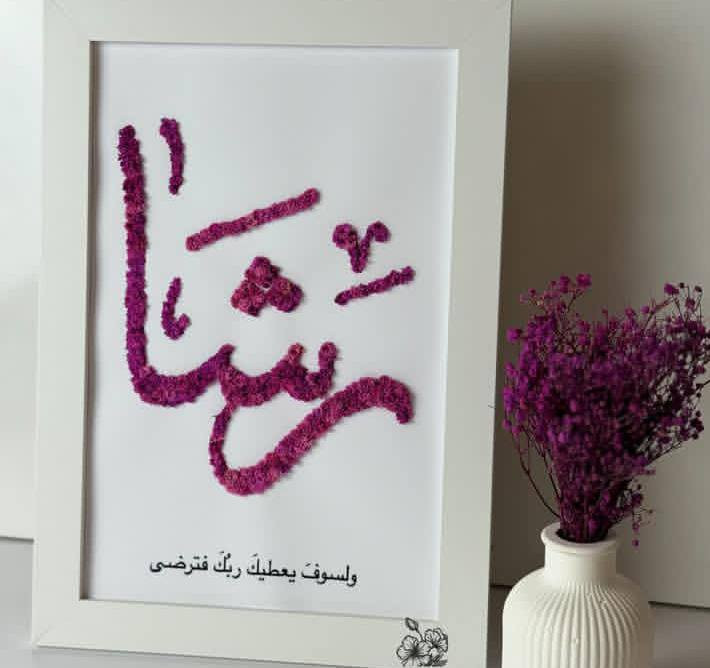 رشا
ولسوفَ يعطيكَ ربُكَ فترضى